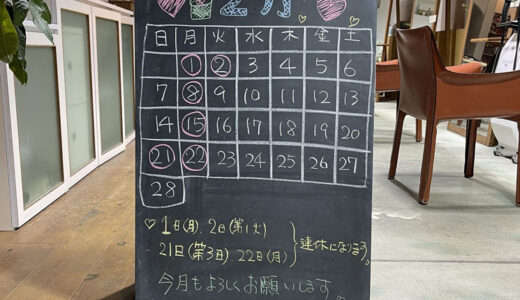 2月
日 月 火 水 木 金 土
1 2 3 4 5 6
7 8 9 10 11 12 13
14 15 16 17 18 19 20
21 22 23 24 25 26 27
28
♡1日(月).2日(第1火)
21日(第3日).22日(月)}連休になります。
今月もよろしくお願いします。